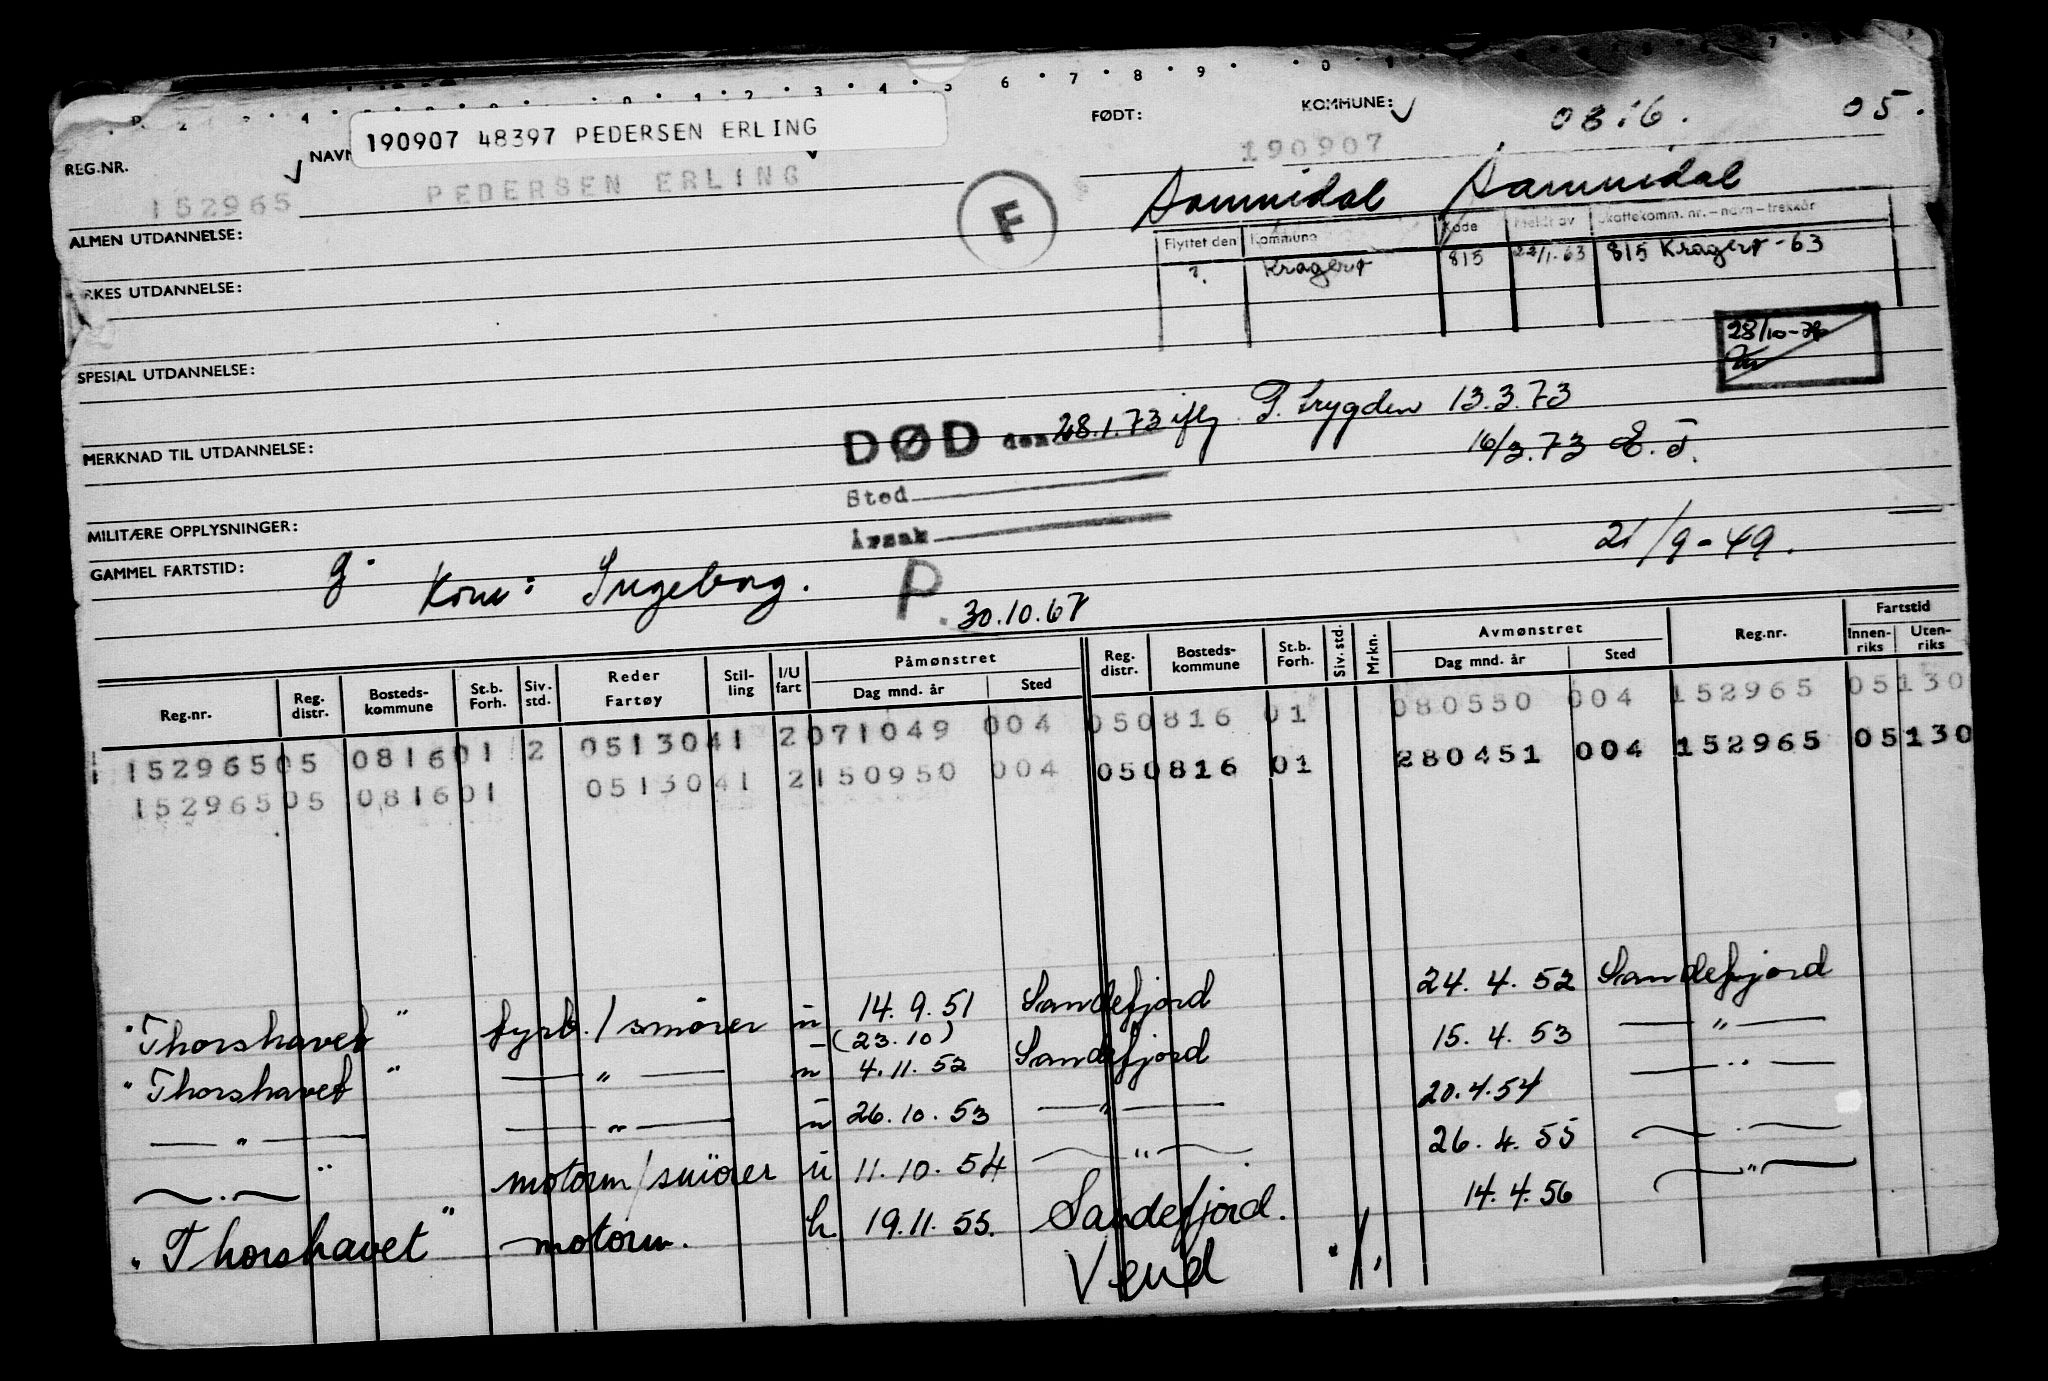 190907 48397 PEDERSEN ERLING
FØDT:
KOMMUNE:
0816.
05.
REG.NR.
NAVN
190907
152965
PEDERSEN ERLING
F
Sannidal Sannidal
ALMEN UTDANNELSE:
Flyttet den Kommune Kode Meldt av Skattekomm. nr. – navn – trekkår
? Kragerø 815 22/1.63 815 Kragerø - 63
YRKES UTDANNELSE:
28/10-76
SPESIAL UTDANNELSE:
DØD den 28.1.73 iflg P. trygden 13.3.73
MERKNAD TIL UTDANNELSE:
16/3.73 E.T.
Sted
MILITÆRE OPPLYSNINGER:
Årsak
21/9-49.
GAMMEL FARTSTID:
g.
Kone: Ingeborg.
P. 30.10.67
Reg.nr. Reg. distr. Bosteds- kommune St.b. Forh. Siv. std. Reder Fartøy Stil- ling I/U fart Påmønstret Dag mnd. år Sted Reg. distr. Bosteds- kommune St.b. Forh. Siv. std. Mrkn. Avmønstret Dag mnd. år Sted Reg.nr. Fartstid Innen- riks Uten- riks
152965 05 0816 01 2 05130 41 2 071049 004 05 0816 01 080550 004 152965 05130
152965 05 0816 01 05130 41 2 150950 004 05 0816 01 280451 004 152965 05130
"Thorshavet" fyrb./smører u 14.9.51 Sandefjord 24.4.52 Sandefjord
(23.10)
"Thorshavet" — " — u 4.11.52 Sandefjord 15.4.53 — " —
— " — — " — u 26.10.53 — " — 20.4.54 — " —
— " — motorm/smører u 11.10.54 — " — 26.4.55 — " —
"Thorshavet" motorm. h 19.11.55. Sandefjord. 14.4.56 — " —
Vend ./.